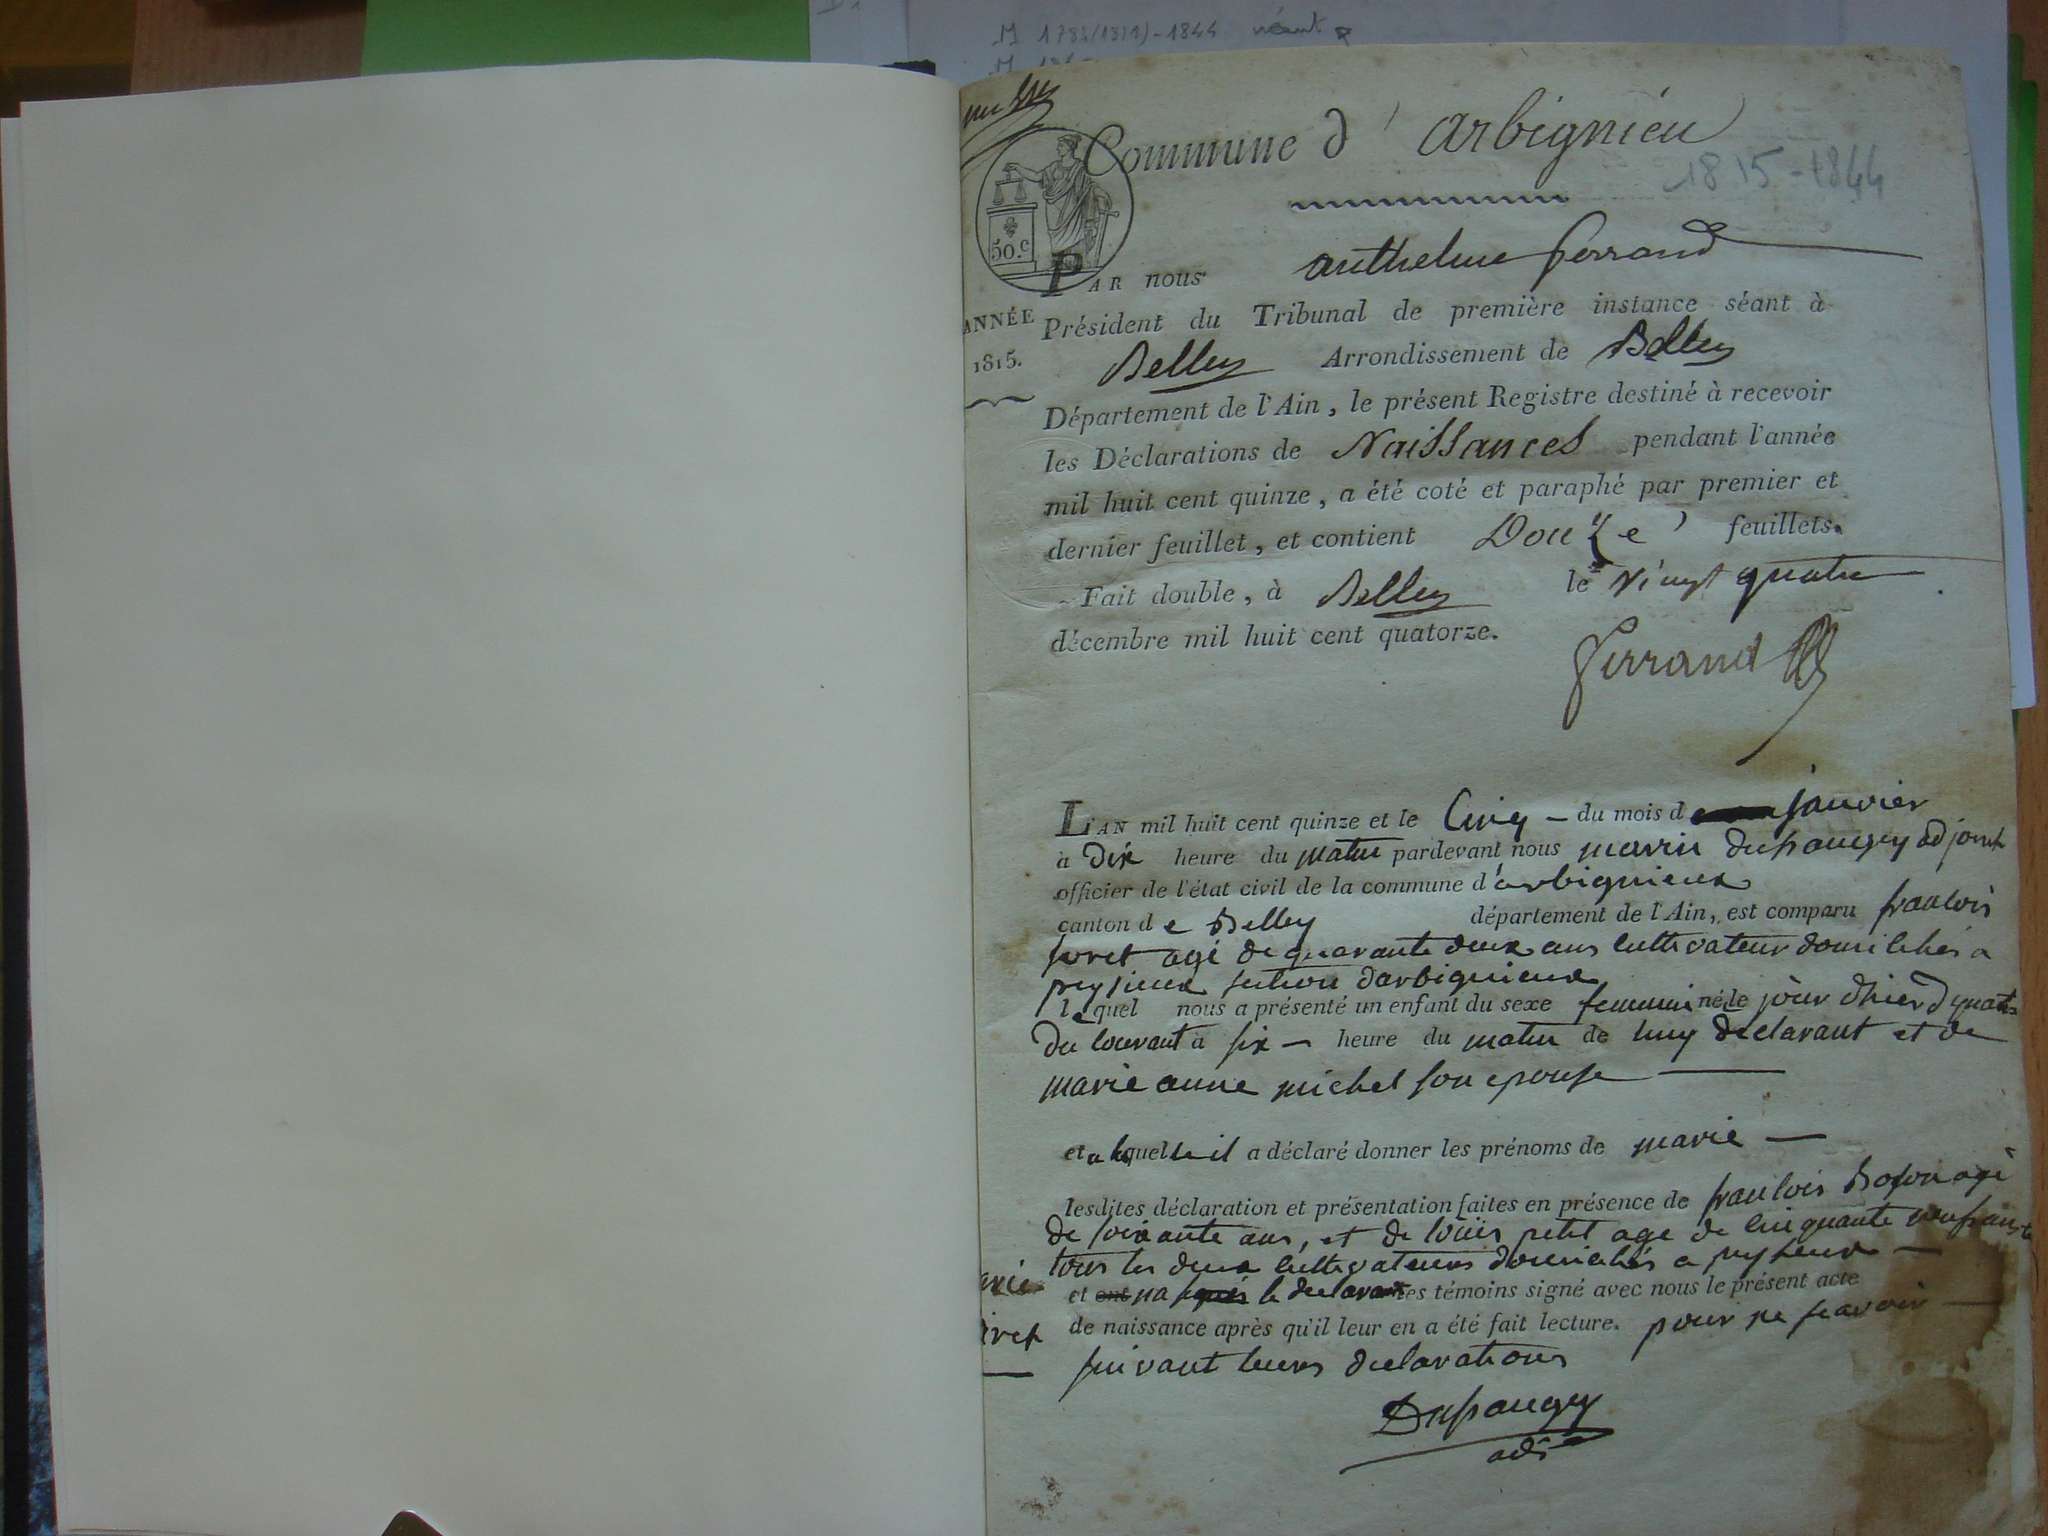 M 1784(1812)-1844 néant
Commune d' arbignieu
1815-1844
50.c
PAR nous anthelme ferrand
ANNÉE
1815.
Président du Tribunal de première instance séant à
Belley Arrondissement de Belley
Département de l'Ain, le présent Registre destiné à recevoir
les Déclarations de Naissances pendant l'année
mil huit cent quinze, a été coté et paraphé par premier et
dernier feuillet, et contient Douze feuillets.
Fait double, à Belley le vingt quatre
décembre mil huit cent quatorze.
Ferrand
L'AN mil huit cent quinze et le Cinq - du mois d janvier
à Dix heure du matin pardevant nous marin dupaugey adjoint
officier de l'état civil de la commune d'arbignieux
canton de Belley département de l'Ain, est comparu francois
agé de quarante deux ans cultivateur domiciliés a
peyzieux section darbignieux
lequel nous a présenté un enfant du sexe feminin né le jour dhier quatre
du courant à six - heure du matin de luy declarant et de
marie anne michel son epouse
et a laquelle il a déclaré donner les prénoms de marie -
lesdites déclaration et présentation faites en présence de francois agé
de soixante ans, et de louis petit age de cinquante neuf ans
tous les deux cultivateurs domiciliés a peyzieux -
et ont na le declarant les témoins signé avec nous le présent acte
de naissance après qu'il leur en a été fait lecture. pour ne scavoir
suivant leurs declarations
Dupaugey
adj